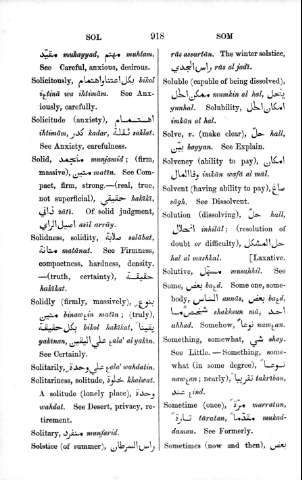 SOL 918 SOM
مقيد mukayyad, مهتم muhtam.
See Careful, anxious, desirous.
Solicitously, بكل اعتناء واهتمام bikol
iʿtinā wa ihtimām. See Anx-
iously, carefully.
Solicitude (anxiety), اهتمام
ihtimām, كدر kadar, ثقلة saklat.
See Anxiety, carefulness.
Solid, منجمد munjamid; (firm,
massive), متين matīn. See Com-
pact, firm, strong.—(real, true,
not superficial), حقيقي hakīkī,
ذاتي sātī. Of solid judgment,
اصيل الراي asīl arrāy.
Solidness, solidity, صلابة salābat,
متانة matānat. See Firmness,
compactness, hardness, density.
—(truth, certainty), حقيقة
hakīkat.
Solidly (firmly, massively), بنوع
متين binawʿin matīn; (truly),
بكل حقيقة bikol hakīkat, يقينا
yakīnan, علي اليقين ʿalaʾ al yakīn.
See Certainly.
Solitarily, علي وحدة ʿalaʾ wahdatin.
Solitariness, solitude, خلوة khalwat.
A solitude (lonely place), وحدة
wahdat. See Desert, privacy, re-
tirement.
Solitary, منفرد munfarid.
Solstice (of summer), راس السرطان
rās assartān. The winter solstice,
راس الجدي rās al jadī.
Soluble (capable of being dissolved),
ممكن الحل mumkin al hal, ينحل
yunhal. Solubility, امكان الحل
imkān al hal.
Solve, v. (make clear), حل hall,
بين bayyan. See Explain.
Solvency (ability to pay), امكان
وفا المال imkān wafā al māl.
Solvent (having ability to pay), صاغ
sāgh. See Dissolvent.
Solution (dissolving), حل hall,
انحلال inhilāl; (resolution of
doubt or difficulty), حل المشكل
hal al mushkal. [Laxative.
Solutive, مسهل musahhil. See
Some, بعض baʿd. Some one, some-
body, الناس بعض baʿd annās,
شخص ما shakhsun mā, احد
ahhad. Somehow, نوعا nawʿan.
Something, somewhat, شي shay.
See Little.—Something, some-
what (in some degree), نوعا
nawʿan; nearly), تقريبا takrīban,
عند ʿind.
Sometime (once), مرة marratan,
تارة tāratan, مقدما mukad-
daman. See Formerly.
Sometimes (now and then), بعض